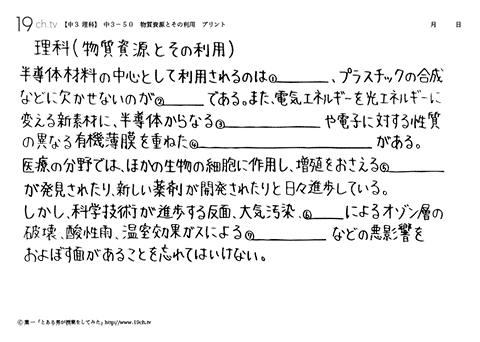 19ch.tv 【中3 理科】 中3-50 物質資源とその利用 プリント 月 日
理科(物質資源とその利用)
半導体材料の中心として利用されるのは①________、プラスチックの合成
などに欠かせないのが②______である。また、電気エネルギーを光エネルギーに
変える新素材に、半導体からなる③____________や電子に対する性質
の異なる有機薄膜を重ねた④____________________がある。
医療の分野では、ほかの生物の細胞に作用し、増殖をおさえる⑤________
が発見されたり、新しい薬剤が開発されたりと日々進歩している。
しかし、科学技術が進歩する反面、大気汚染、⑥____によるオゾン層の
破壊、酸性雨、温室効果ガスによる⑦__________などの悪影響を
およぼす面があることを忘れてはいけない。
© 葉一 「とある男が授業をしてみた」 http://www.19ch.tv